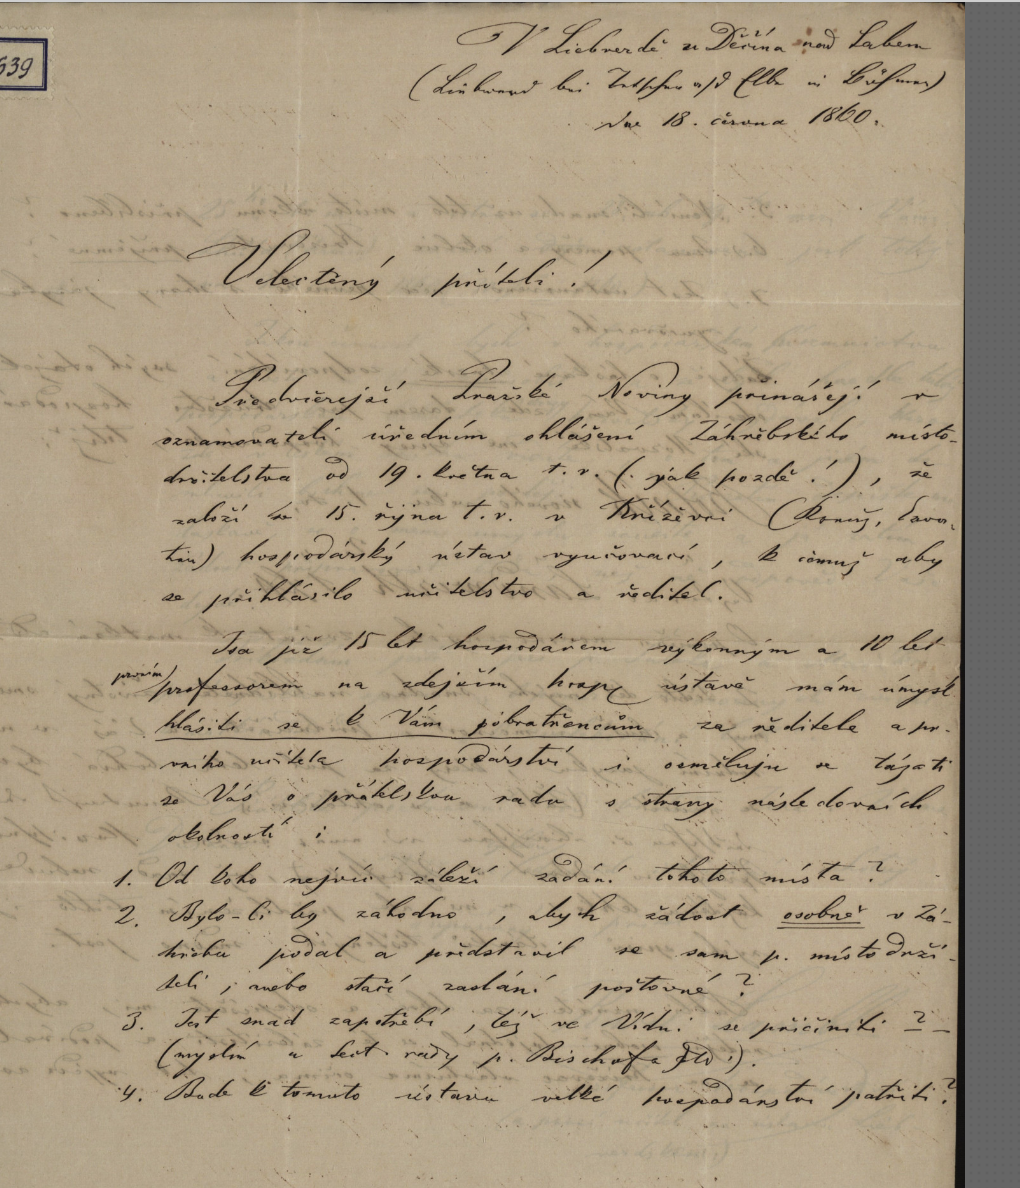 639
V Liebverdě u Děčína nad Labem
(Liebwerd bei Tetschen a/d Elbe in Böhmen)
dne 18. června 1860.
Velectěný příteli!
Předvčerejší Pražské Noviny přinášejí v
oznamovateli úředním ohlášení Záhřebského místo-
držitelstva od 19. května t. r. (: jak pozdě!), že
založí se 15. října t. r. v Kříževci (
) hospodářský ústav vyučovací, k čemuž aby
se přihlásilo učitelstvo a ředitel.
Jsa již 15 let hospodářem výkonným a 10 let
prvním
professorem na zdejším hosp. ústavě mám úmysl
hlásiti se k Vám pobratřencům za ředitele a pr-
vního učitele hospodářství i osměluju se tázati
se Vás o přátelskou radu s strany následovních
okolností:
1. Od koho nejvíc záleží zadání tohoto místa?
2. Bylo-li by záhodno, abych žádost osobně v Zá-
hřebu podal a představil se sam p. místodrží-
teli, anebo stačí zaslání poštovné?
3. Jest snad zapotřebí, též ve Vídni se přičiniti?
(myslím u sekt. rady p. Bischofa :).
4. Bude k tomuto ústavu velké hospodářství patřiti?